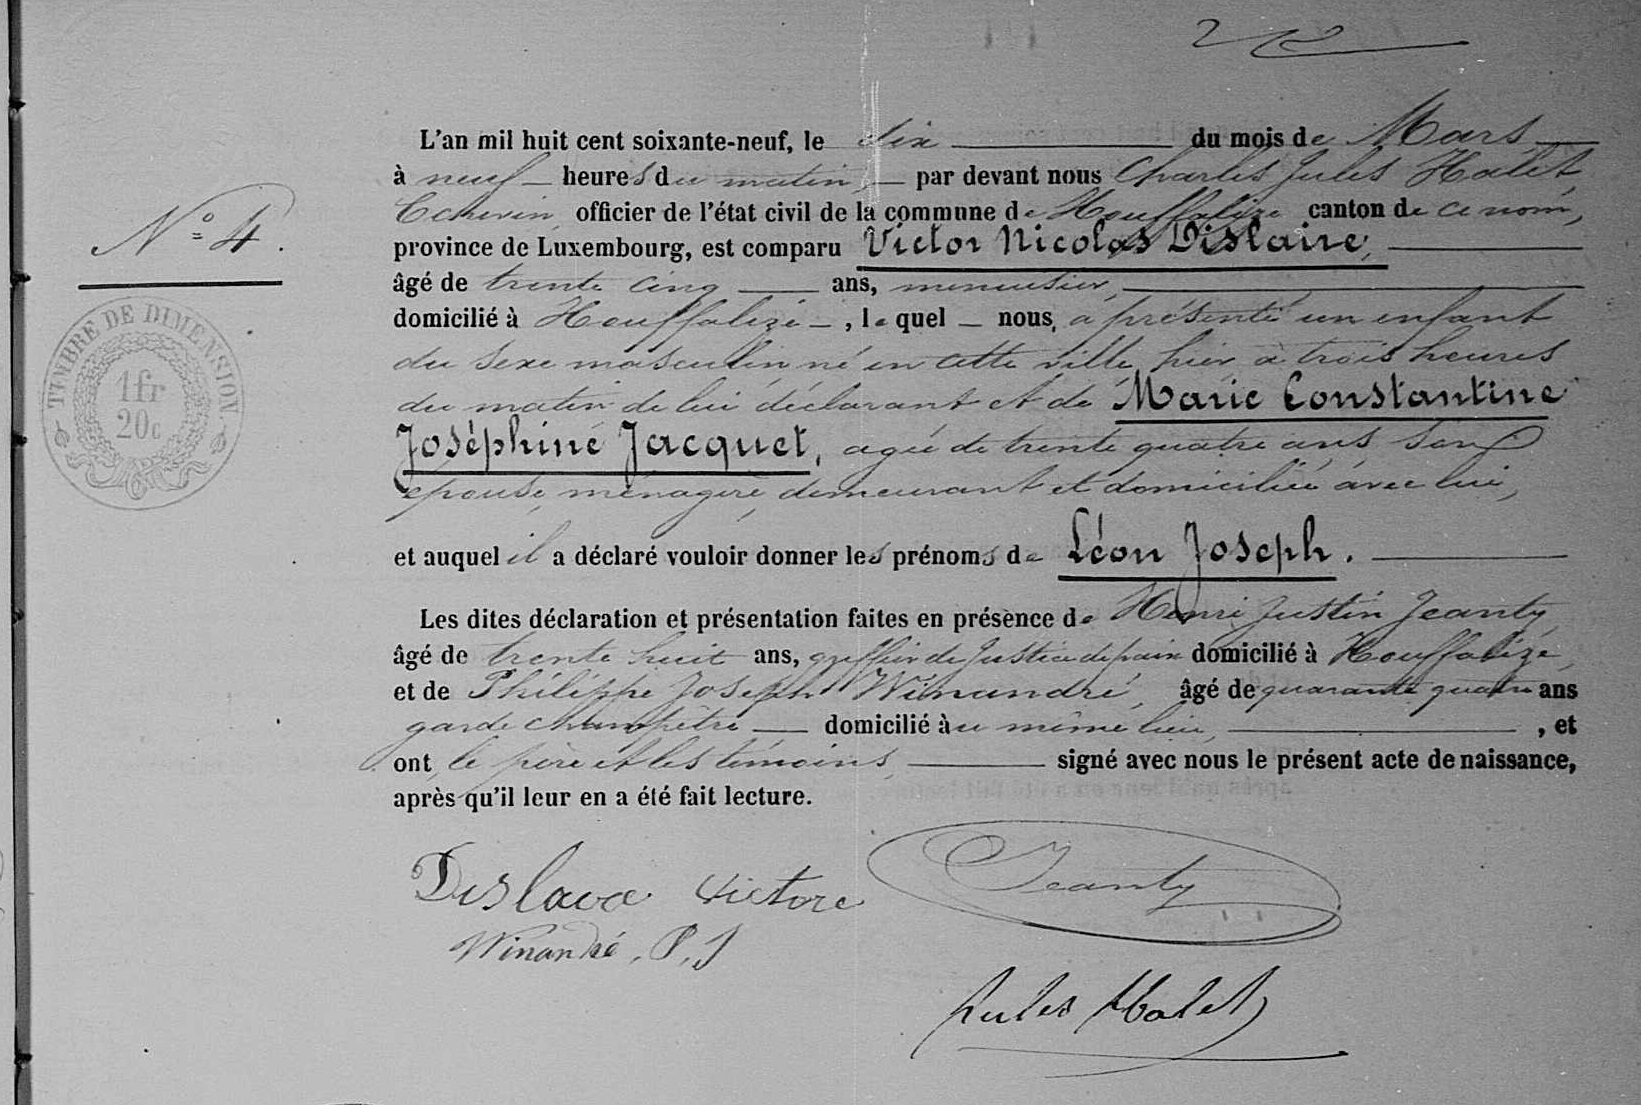 L'an mil huit cent soixante-neuf, le dix du mois de Mars
à neuf heures du matin, par devant nous Charles Jules Halet,
Echevin, officier de l'état civil de la commune de Houffalize canton de ce nom,
N° 4.
province de Luxembourg, est comparu Victor Nicolas Dislaire,
âgé de trente cinq ans, menuisier,
domicilié à Houffalize, lequel nous a présenté un enfant
TIMBRE DE DIMENSION
1fr
20c
du sexe masculin né en cette ville hier à trois heures
du matin de lui déclarant et de Marie Constantine
Joséphine Jacquet, agée de trente quatre ans son
épouse, ménagère, demeurant et domiciliée avec lui,
et auquel il a déclaré vouloir donner les prénoms de Léon Joseph.
Les dites déclaration et présentation faites en présence de Henri Justin Jeanty,
âgé de trente huit ans, greffier de Justice de paix domicilié à Houffalize,
et de Philippe Joseph Winandré, âgé de quarante quatre ans
garde champêtre domicilié au même lieu, , et
ont, le père et les témoins, signé avec nous le présent acte de naissance,
après qu'il leur en a été fait lecture.
Victore Jeanty
Winandré, P, J
Jules Halet